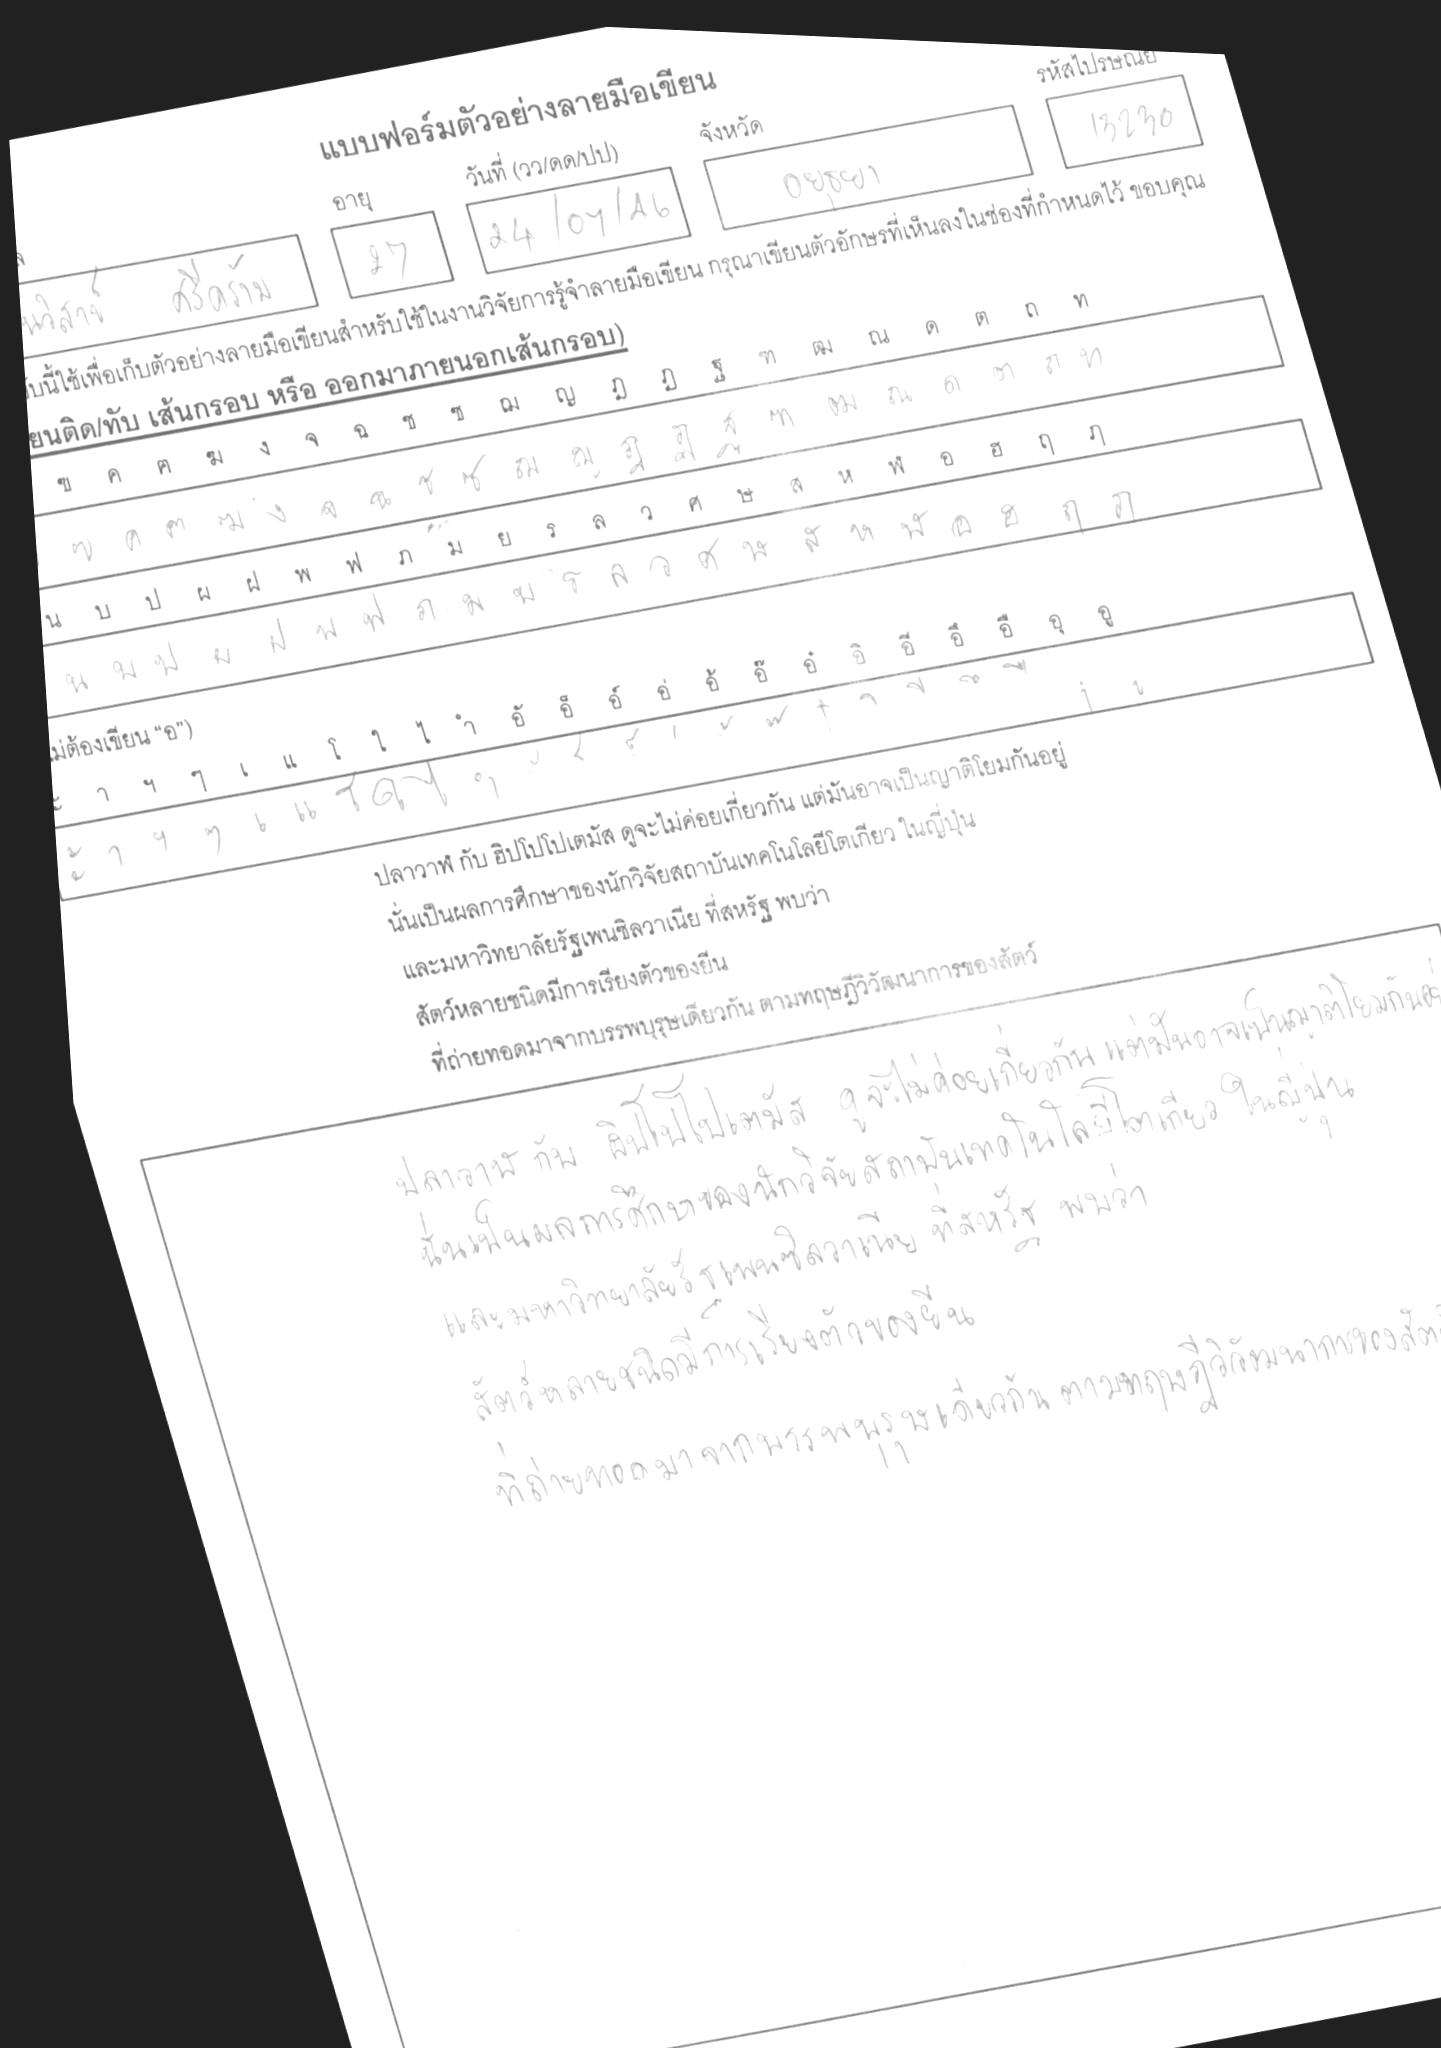 แบบฟอร์มตัวอย่างลายมือเขียน
อายุ วันที่ (วว/ดด/ปป) จังหวัด รหัสไปรษณีย์
ศรีคร้าม 27 24/07/26 อยุธยา 13230
บนี้ใช้เพื่อเก็บตัวอย่างลายมือเขียนสำหรับใช้ในงานวิจัยการรู้จำลายมือเขียน กรุณาเขียนตัวอักษรที่เห็นลงในช่องที่กำหนดไว้ ขอบคุณ
ยนติด/ทับ เส้นกรอบ หรือ ออกมาภายนอกเส้นกรอบ)
ฃ ค ฅ ฆ ง จ ฉ ช ซ ฌ ญ ฎ ฏ ฐ ฑ ฒ ณ ด ต ถ ท
ฃ ค ฅ ฆ ง จ ฉ ช ซ ฌ ญ ฎ ฏ ฐ ฑ ฒ ณ ด ต ถ ท
น บ ป ผ ฝ พ ฟ ภ ม ย ร ล ว ศ ษ ส ห ฬ อ ฮ ฤ ฦ
น บ ป ผ ฝ พ ฟ ภ ม ย ร ล ว ศ ษ ส ห ฬ อ ฮ ฤ ฦ
ม่ต้องเขียน "อ")
ะ า ฯ ๆ เ แ โ ใ ไ ำ อั อ็ อ์ อ่ อ้ อ๊ อ๋ อิ อี อึ อื อุ อู
ะ า ฯ ๆ เ แ โ ใ ไ ำ ั ็ ์ ่ ้ ๊ ๋ ิ ี ึ ื ุ ู
ปลาวาฬ กับ ฮิปโปโปเตมัส ดูจะไม่ค่อยเกี่ยวกัน แต่มันอาจเป็นญาติโยมกันอยู่
นั่นเป็นผลการศึกษาของนักวิจัยสถาบันเทคโนโลยีโตเกียว ในญี่ปุ่น
และมหาวิทยาลัยรัฐเพนซิลวาเนีย ที่สหรัฐ พบว่า
สัตว์หลายชนิดมีการเรียงตัวของยีน
ที่ถ่ายทอดมาจากบรรพบุรุษเดียวกัน ตามทฤษฎีวิวัฒนาการของสัตว์
ปลาวาฬ กับ ฮิปโปโปเตมัส ดูจะไม่ค่อยเกี่ยวกัน แต่มันอาจเป็นญาติโยมกันอยู่
นั่นเป็นผลการศึกษาของนักวิจัยสถาบันเทคโนโลยีโตเกียว ในญี่ปุ่น
และมหาวิทยาลัยรัฐเพนซิลวาเนีย ที่สหรัฐ พบว่า
สัตว์หลายชนิดมีการเรียงตัวของยีน
ที่ถ่ายทอดมาจากบรรพบุรุษเดียวกัน ตามทฤษฎีวิวัฒนาการของสัตว์